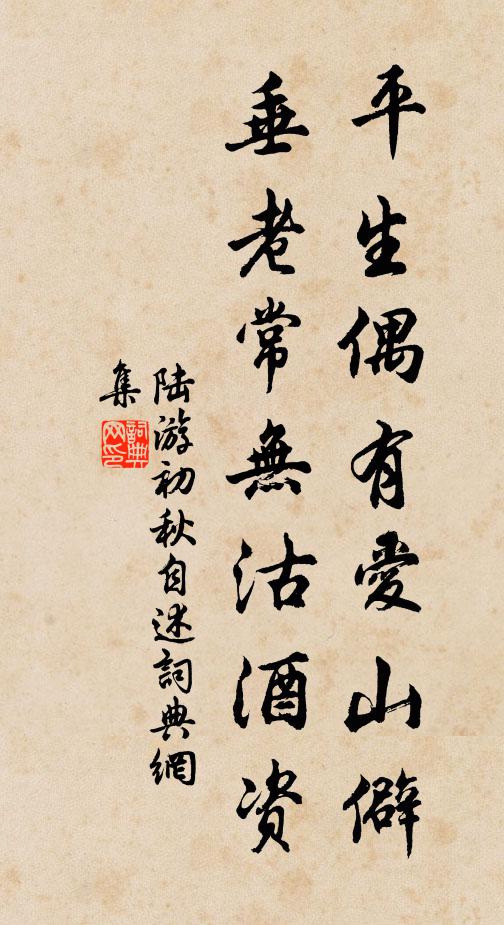 平生偶有愛山僻
垂老常無沽酒资
陆游初秋自述詞典網
集
詞典
网印